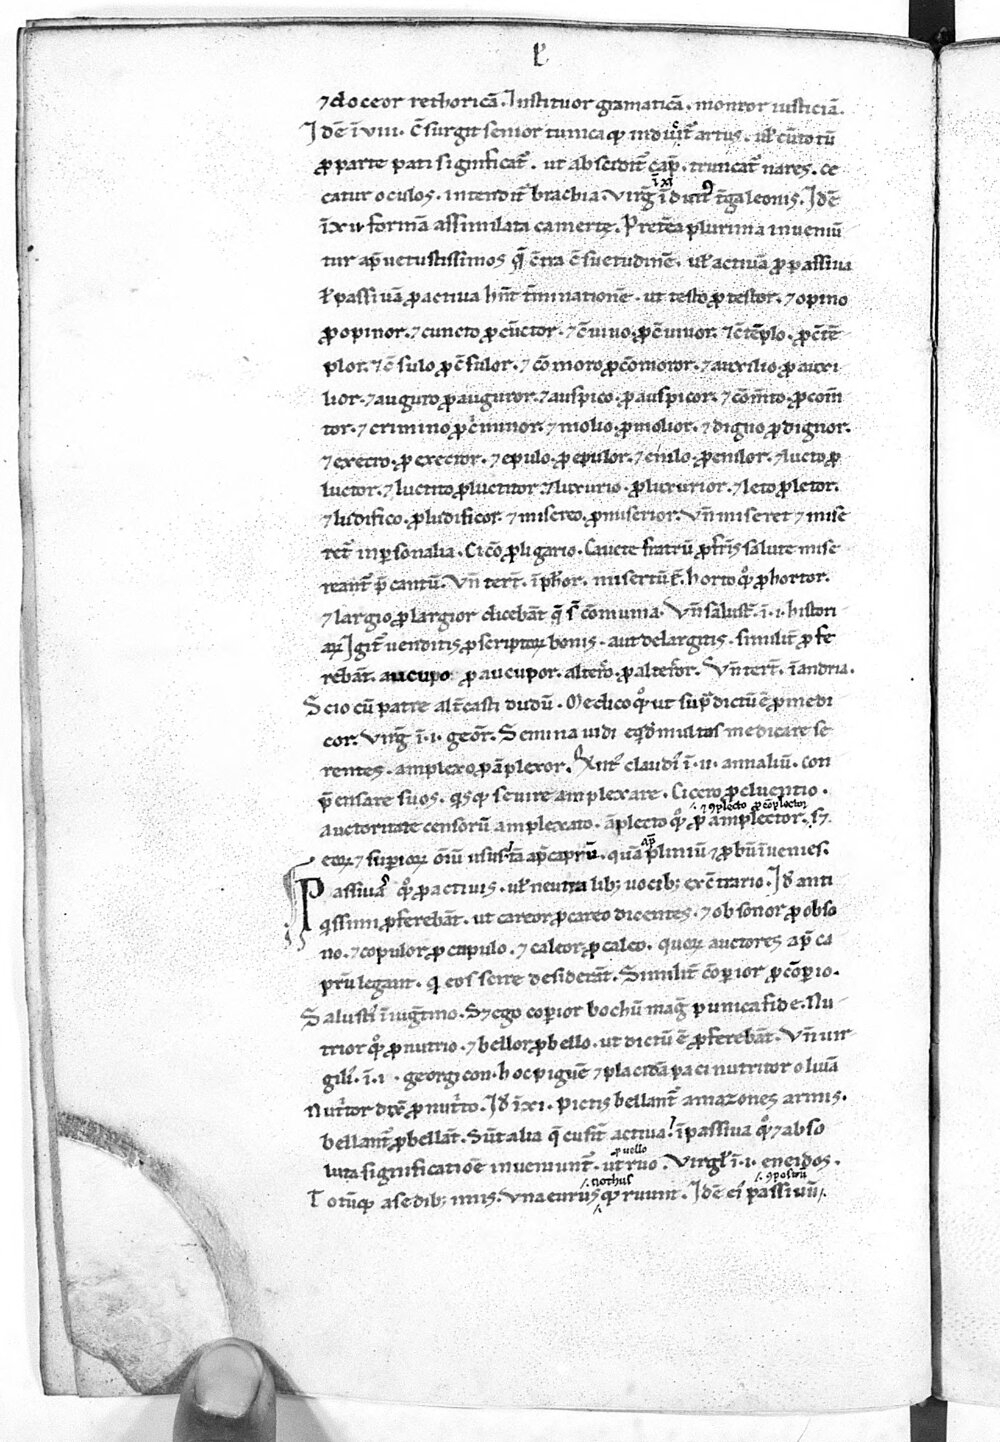 ƚ
⁊ doceor rethoricā. Instituor gramaticā. monror iusticiā.
Idē ī viii. c̄surgit senior tunicaq; induit̄ artus. uł cū totū
ꝓ parte pati significat̄. ut abscidit̄ cap̄. truncat̄ nares. ce
catur oculos. intendit̄ brachia. Virḡ ī xi dudit̄ t̄ga leonis. Idē
ī xii. formā assimilata camerte. Pret̄ea plurima inueniū
tur ap̄ uetustissimos q̄ c̄tra c̄suetudinē. uł actiuā ꝓ passiua
ł passiuā ꝓ actiua hn̄t t̄minationē. ut testo ꝓ testor. ⁊ opino
ꝓ opinor. ⁊ cuncto ꝓ cūctor. ⁊ c̄uiuo. ꝓ c̄uiuor. ⁊ c̄tēplo. ꝓ c̄tē
plor. ⁊ c̄sulo ꝓ c̄sulor. ⁊ cōmoro ꝓ cōmoror. ⁊ auxilio ꝓ auxi
lior. ⁊ auguro ꝓ auguror. ⁊ auspico. ꝓ auspicor. ⁊ cōm̄to. ꝓ com̄
tor. ⁊ crimino ꝓ c̄minor. ⁊ molio. ꝓ molior. ⁊ digno ꝓ dignor.
⁊ execro. ꝓ execror. ⁊ epulo. ꝓ epulor. ⁊ emlo. ꝓ emlor. ⁊ lucto ꝓ
luctor. ⁊ luctito ꝓ luctitor. ⁊ luxurio. ꝓ luxurior. ⁊ leto ꝓ letor.
⁊ ludifico. ꝓ ludificor. ⁊ misereo. ꝓ miserior. Vn̄ miseret ⁊ mise
ret̄ inp̱sonalia. Cicō ꝓ ligario. Cauete fratrū ꝓ fr̄is salute mise
reant̄ p̄cantū. Vn̄ tert̄. ī phor. misertū ē. horto qͦꝫ ꝓ hortor.
⁊ largio ꝓ largior dicebāt q̄ s̄ cōmunia. Vn̄ salust̄. ī. i. histori
aꝝ Igit̄ uenditis ꝓscriptoꝝ bonis. aut delargitis. similit̄ ꝓfe
rebāt. aucupo ꝓ aucupor. alt̄co. ꝓ altercor. Vn̄ tert̄. ī andria.
Scio cū patre alt̄casti dudū. Medico qͦꝫ ut sup̄ dictū ē ꝓ medi
cor. Virḡ ī. i. geor̄. Semina uidi eq̄dē multos medicare se
rentes. amplexo ꝓ āplexor. claudi ī. ii. annaliū. con
p̄ensare suos. q̄sq; seuire amplexare. Cicero ꝓ cluentio.
auctoritate censorū amplexato. āplecto qͦꝫ ꝓ amplector. s⁊
⁊ ꝯplecto ꝓ cōplector
eoꝝ ⁊ superioꝝ oīū usus tā ap̄ caprū. quā ap̄ pliniū ⁊ ꝓbū īuenies.
Passiua qͦꝫ ꝓ actiuis. uł neutralib; uocib; ex c̄trario. Id̄ anti
qissimi ꝓferebāt. ut careor ꝓ careo dicentes. ⁊ obsonor ꝓ obso
no. ⁊ copulor ꝓ copulo. ⁊ caleor. ꝓ caleo. quoꝝ auctores ap̄ ca
prū legant. q̇ eos scire desiderāt. Similit̄ c̄perior ꝓ c̄perio.
Salusti ī iugt̄ino. S⁊ ego coperior bochū maḡ punica fide. Nu
trior qͦꝫ ꝓ nutrio. ⁊ bellor ꝓ bello. ut dictū ē ꝓferebāt. Vn̄ uir
gili. ī. i. georgicon. hoc piguē ⁊ placidā paci nutritor oliuā
Nut̄tor dix̄ ꝓ nut̄to. Id̄ ī xi. Pictis bellant̄ amazones armis.
bellant̄ ꝓ bellāt. Sūt alia q̄ cū sīt actiua. ī passiua qͦꝫ ⁊ abso
luta significatiōe inueniunt̄. ut ruo. Virgł ī. i. eneidos.
ꝓ uello
Totūq; a sedib; imis. Vna eurusq; ruunt. Idē ei passiuū.
nothus
ꝯpositū